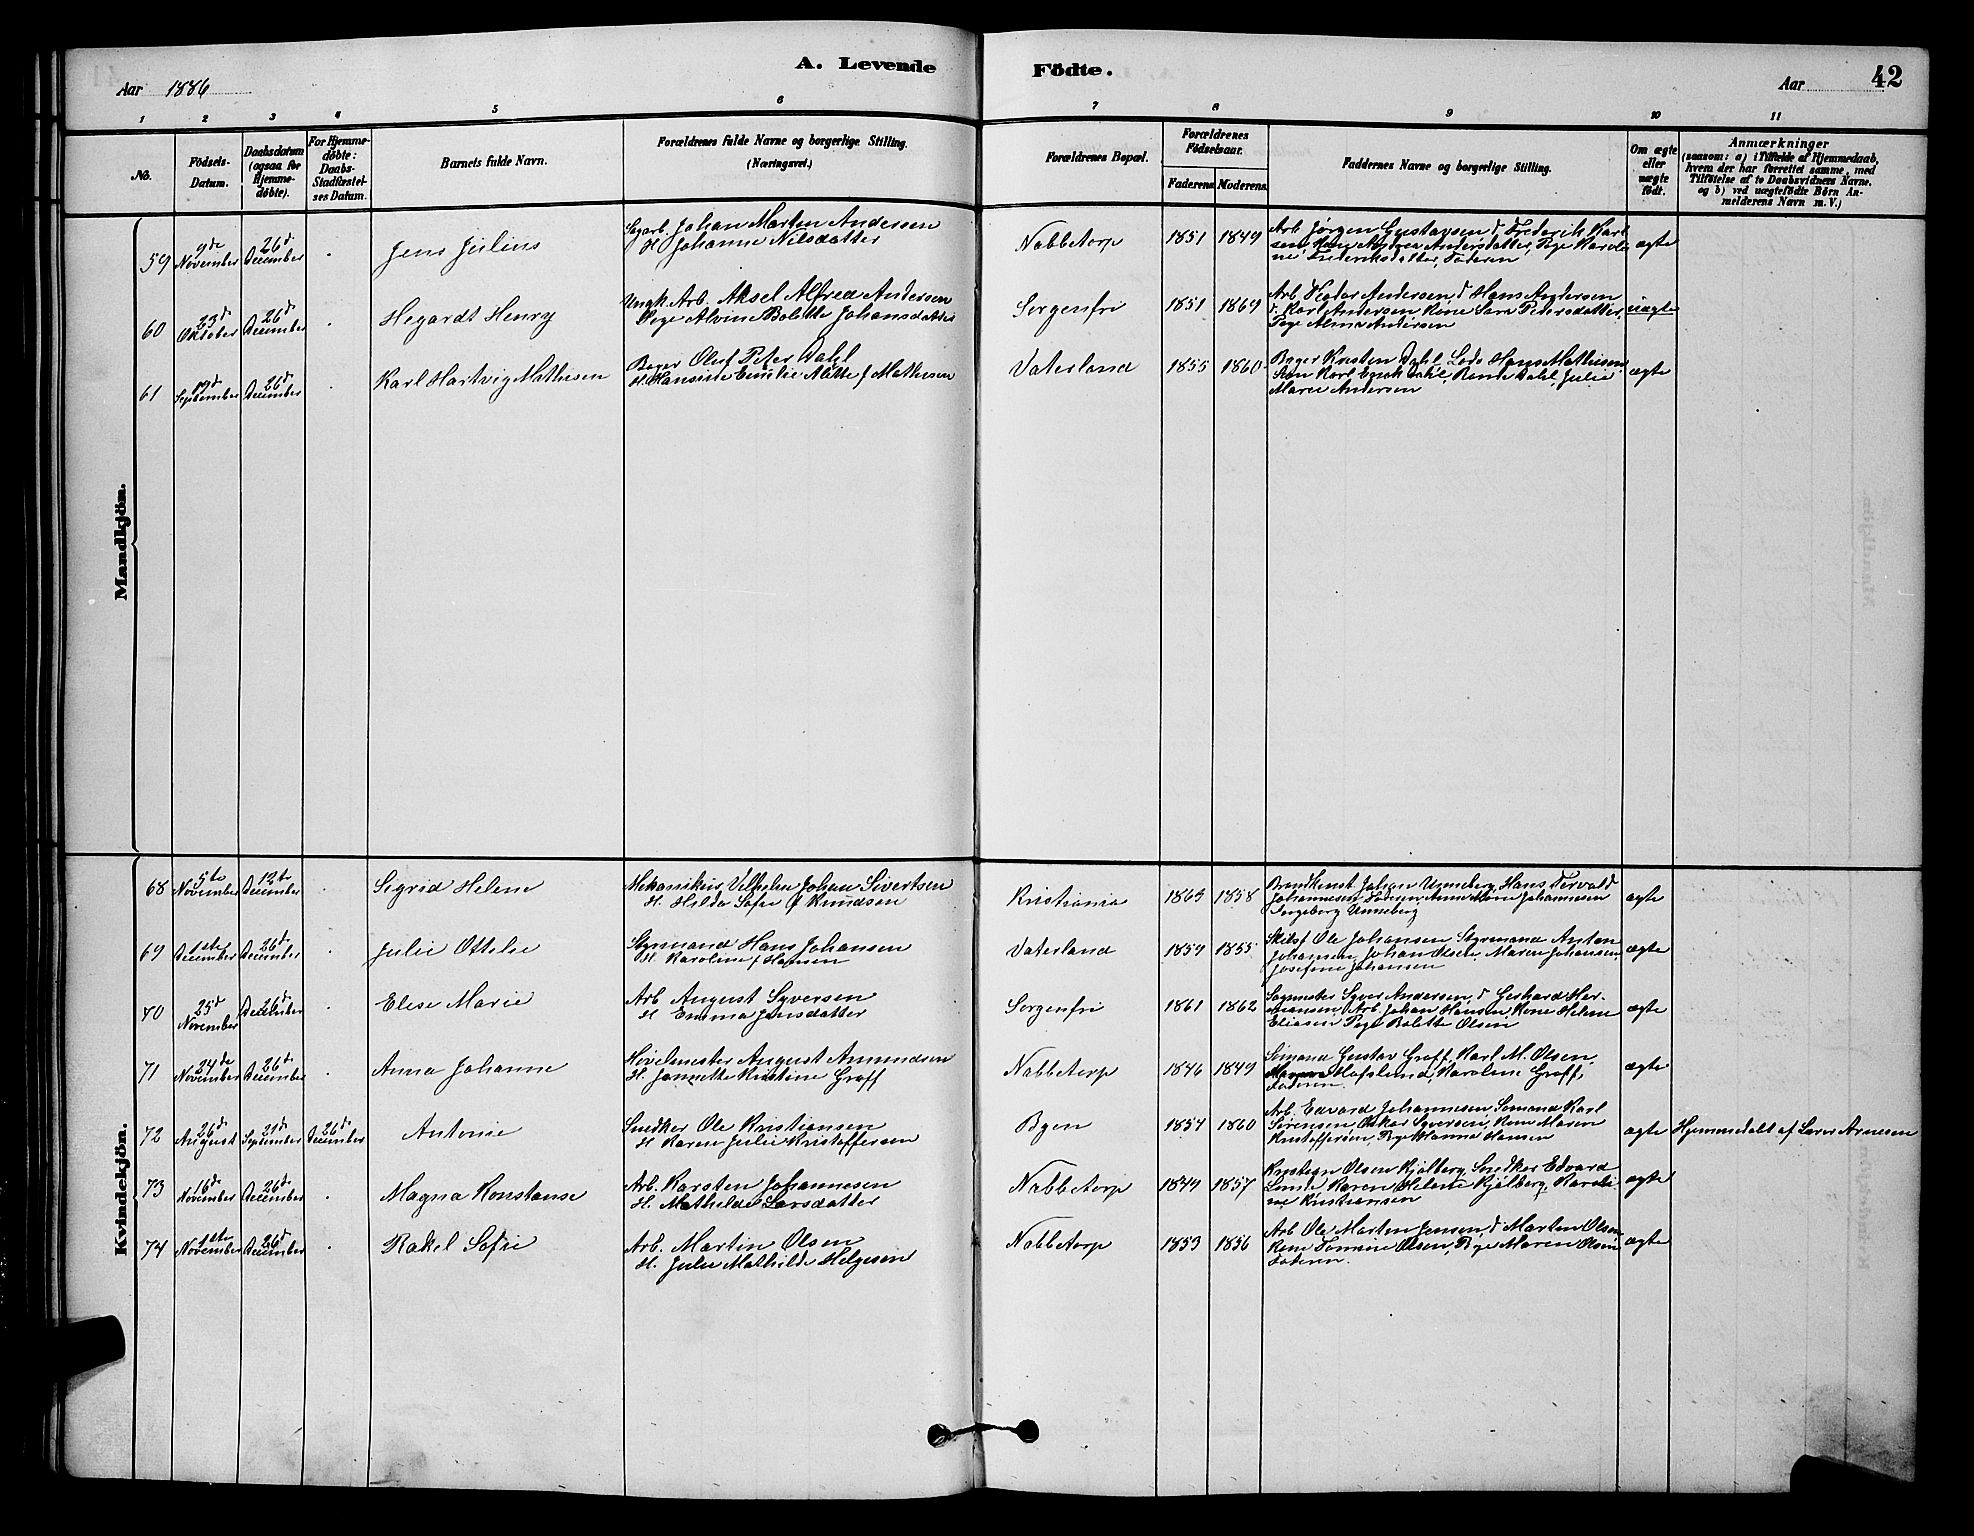 A. Levende Födte.
Aar 1886
Aar 42
1 2 3 4 5 6 7 8 9 10 11
No.
Födsels-Datum.
Daabsdatum (ogsaa for Hjemmedøbte).
For Hjemmedøbte: Daabs-Stadfæstelses Datum.
Barnets fulde Navn.
Forældrenes fulde Navne og borgerlige Stilling.
(Næringsvei.)
Forældrenes Bopæl.
Forældrenes Födselsaar.
Faderens. Moderens.
Faddernes Navne og borgerlige Stilling.
Om ægte eller uægte födt.
Anmærkninger
(saasom: a) i Tilfælde af Hjemmedaab,
hvem der har forrettet samme, med
Tilföielse af to Daabsvidners Navne,
og b) ved uægtefödte Börn An-
melderens Navn m. V.)
Mandkjön.
59 9de November 26d December Jens Julius
Sagarb. Johan Martin Andersen
H. Johanne Nilsdatter
Nabbetorp 1851 1849
Arb. Jörgen Gustavsen, d Frederik Karl
sen, Kone Andrea Andersdatter, Pige Karoli
ne Frederiksdatter, Faderen
ægte
60 23d Oktober 26d December Hegardt Henry
Ungk. Arb. Aksel Alfred Andersen
Pige Alvine Bolette Johansdatter
Sorgenfri 1851 1869
Arb. Andersen, d Hans Andersen
d. Karl Andersen, Kone Sara Petersdatter,
Pige Alma Andersen
uægte
61 September 26d December Karl Hartvig Mathisen
Bager Oluf Peter Dahl
H. Hansine Emilie Mathisen
Vaterland 1855 1860
Bager Karsten Dahl, Lods Hans Mathisen
Karl Dahl, Dahl, Julie
Maren Andersen
ægte
Kvindekjön.
68 5te November 12te December Sigrid Helene
Mekanikus Vilhelm Johan Sivertsen
H. Hilda Sofie f Knudsen
Kristiania 1863 1858
Johan Unneberg, Hans Torvald
Johannesen, Faderen, Johannesen
Ingeborg Unneberg
ægte
69 1ste December 26de December Julie Ottilie
Styrmand Hans Johansen
H. Karoline f Hansen
Vaterland 1859 1855
Skibsf Ole Johansen Styrmand Anton
Johansen, Johan Olsen, Maren Johansen
Josefine Johansen
ægte
70 25d November 26d December Elise Marie
Arb. August Syversen
H. Emma Jensdatter
Sorgenfri 1861 1862
Sagmester Syver Andersen, d Gerhard Her-
mansen, Arb. Johan Hansen, Kone Helene
Eliasen Pige Bolette Olsen
ægte
71 24de November 26d December Anna Johanne
Hövelmester August Amundsen
H. Jannette Kristine Groff
Nabbetorp 1846 1849
Sömand Gustav Groff, Karl M. Olsen,
Hafslund, Karoline Groff,
Faderen.
ægte
72 26d August September 26d December Antonie
Snedker Ole Kristiansen
H. Karen Julie Kristoffersen
Byen 1854 1860
Arb. Edvard Johannesen Sömand Karl
Sörensen, Oskar Syversen, Kone Maren
Kristoffersen, Pige Hanna Hansen
ægte Hjemmedöbt af Lærer Arnesen
73 November 26d December Magna Konstanse
Arb. Karsten Johannesen
H. Mathilde Larsdatter
Nabbetorp 1849 1857
Olsen Kjölberg, Snedker Edvard
Karen Helene Kjölberg, Karoli-
ne Kristiansen
ægte
74 1ste November 26d December Rakel Sofie
Arb. Martin Olsen
H. Julie Mathilde Helgesen
Nabbetorp 1853 1856
Arb Ole Martin Jensen, d Martin Olsen
Kone Tomine Olsen, Pige Maren Olsen
Faderen.
ægte